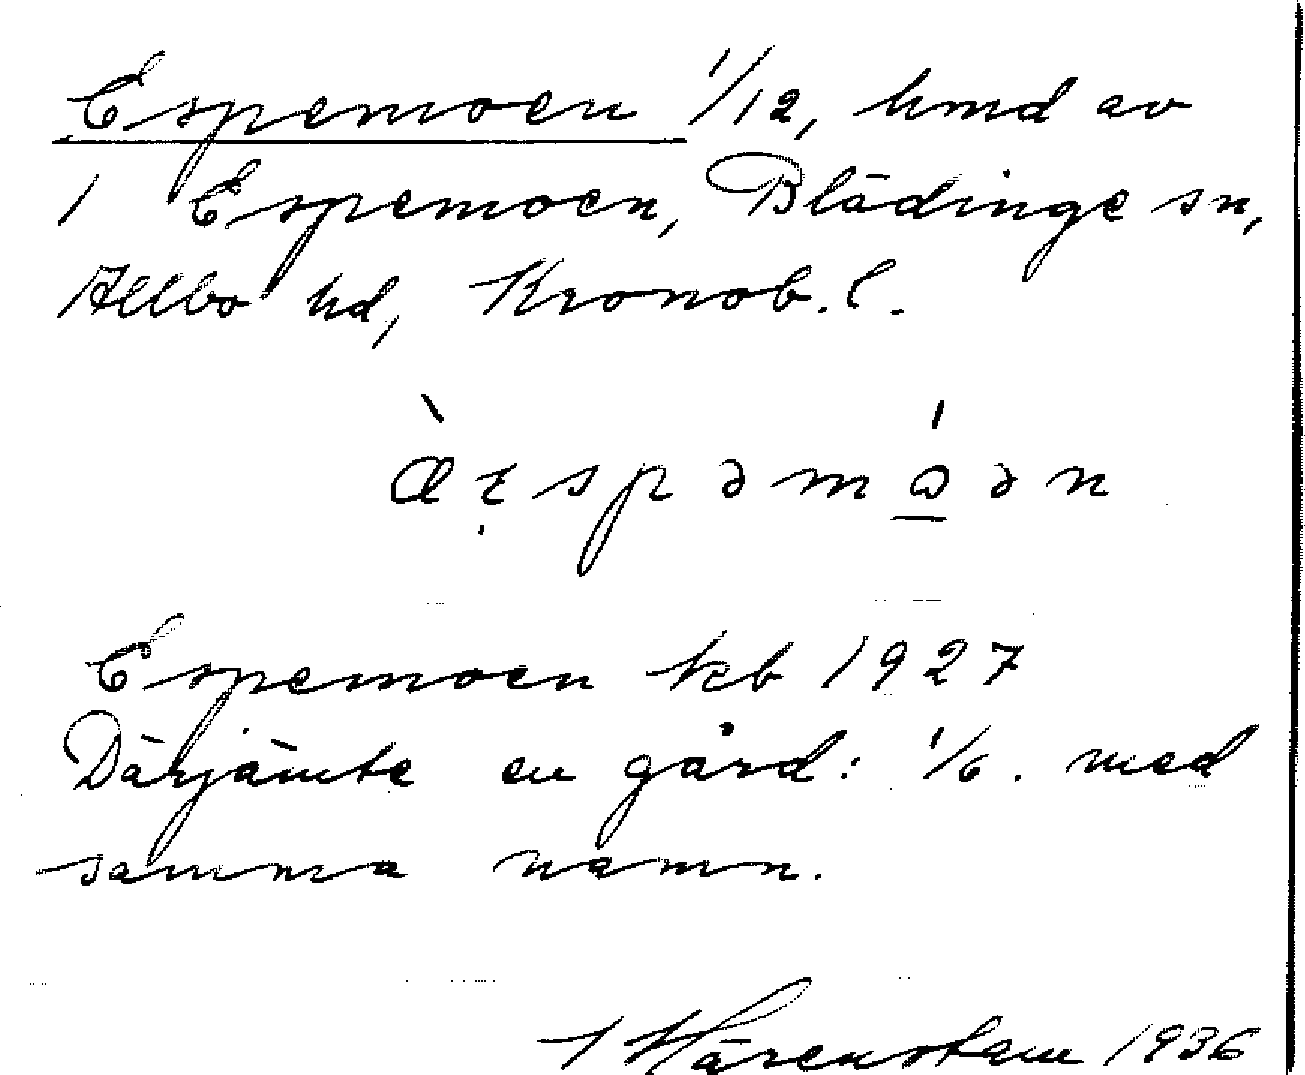 Espemoen 1/12, hmd av
1 Espemoen, Blädinge sn,
Allbo hd, Kronob. l.
æ̀ɾ̣spəmó̲ən
Espemoen kb 1927
Därjämte en gård: 1/6. med
samma namn.
Härenstam 1936